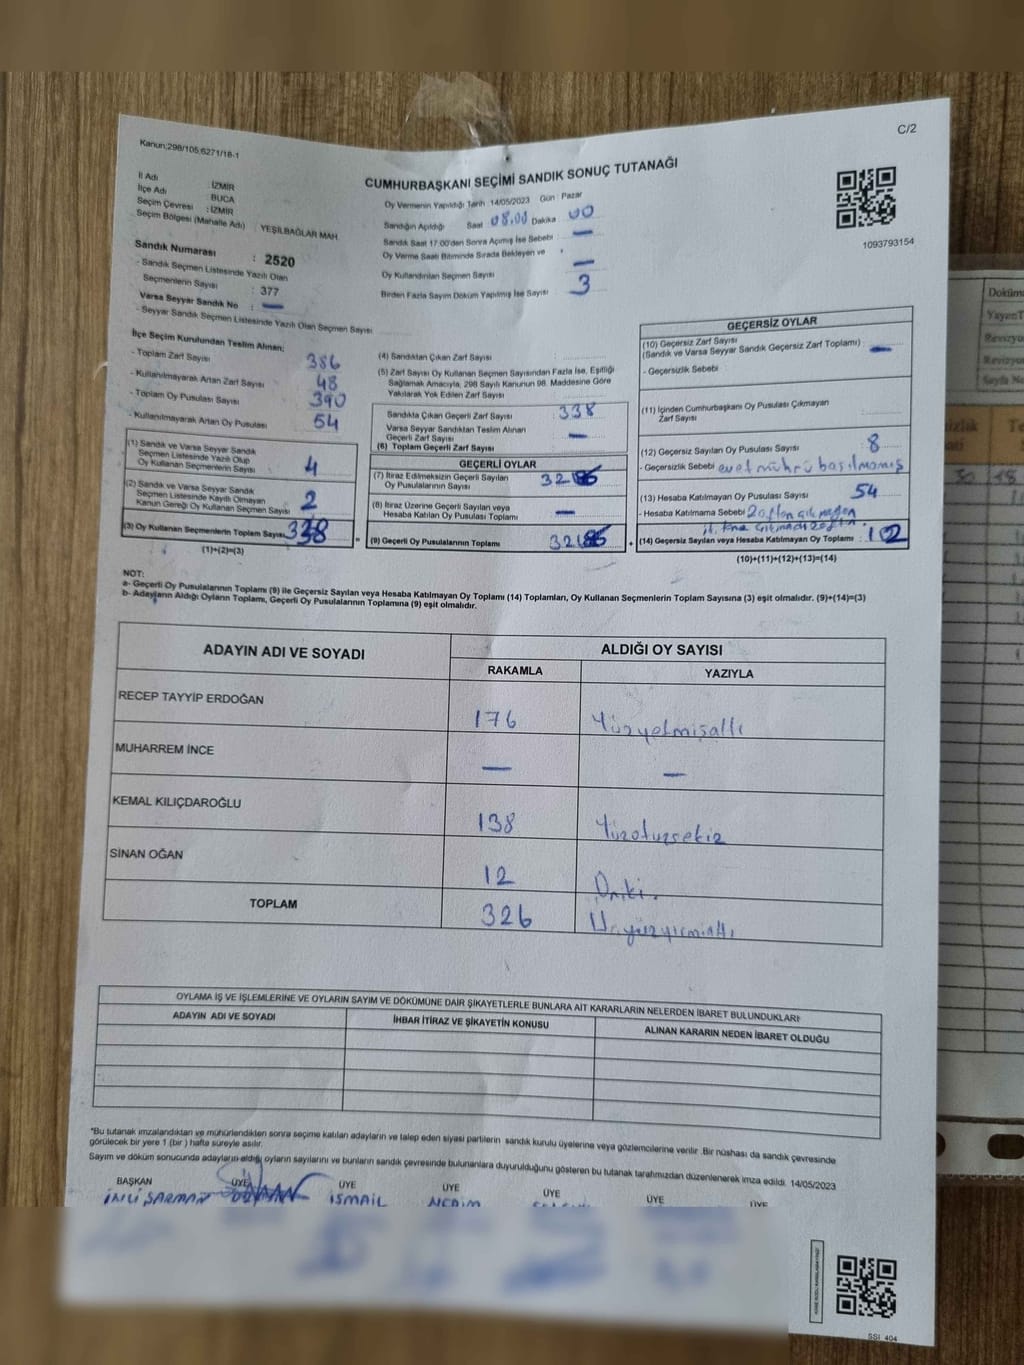 C/2
Kanun;298/105;6271/18-1
CUMHURBAŞKANI SEÇİMİ SANDIK SONUÇ TUTANAĞI
İl Adı : İZMİR
İlçe Adı : BUCA
Seçim Çevresi : İZMİR
Seçim Bölgesi (Mahalle Adı) : YEŞİLBAĞLAR MAH.
Sandık Numarası : 2520
- Sandık Seçmen Listesinde Yazılı Olan
Seçmenlerin Sayısı : 377
Varsa Seyyar Sandık No : —
- Seyyar Sandık Seçmen Listesinde Yazılı Olan Seçmen Sayısı
Oy Vermenin Yapıldığı Tarih :14/05/2023 Gün : Pazar
Sandığın Açıldığı Saat 08.00 Dakika 00
Sandık Saat 17.00'den Sonra Açımış İse Sebebi : —
Oy Verme Saati Bitiminde Sırada Bekleyen ve
Oy Kullandırılan Seçmen Sayısı : —
Birden Fazla Sayım Döküm Yapılmış İse Sayısı : 3
1093793154
İlçe Seçim Kurulundan Teslim Alınan;
- Toplam Zarf Sayısı : 386
- Kullanılmayarak Artan Zarf Sayısı : 48
- Toplam Oy Pusulası Sayısı : 390
- Kullanılmayarak Artan Oy Pusulası : 54
(1) Sandık ve Varsa Seyyar Sandık
Seçmen Listesinde Yazılı Olup
Oy Kullanan Seçmenlerin Sayısı : 4
(2) Sandık ve Varsa Seyyar Sandık
Seçmen Listesinde Kayıtlı Olmayan
Kanun Gereği Oy Kullanan Seçmen Sayısı : 2
(3) Oy Kullanan Seçmenlerin Toplam Sayısı: 338
(1)+(2)=(3)
(4) Sandıktan Çıkan Zarf Sayısı :
(5) Zarf Sayısı Oy Kullanan Seçmen Sayısından Fazla İse, Eşitliği
Sağlamak Amacıyla, 298 Sayılı Kanunun 98. Maddesine Göre
Yakılarak Yok Edilen Zarf Sayısı :
Sandıkta Çıkan Geçerli Zarf Sayısı : 338
Varsa Seyyar Sandıktan Teslim Alınan
Geçerli Zarf Sayısı : —
(6) Toplam Geçerli Zarf Sayısı :
GEÇERLİ OYLAR
(7) İtiraz Edilmeksizin Geçerli Sayılan
Oy Pusulalarının Sayısı :
(8) İtiraz Üzerine Geçerli Sayılan veya
Hesaba Katılan Oy Pusulası Toplamı : —
(9) Geçerli Oy Pusulalarının Toplamı :
GEÇERSİZ OYLAR
(10) Geçersiz Zarf Sayısı
(Sandık ve Varsa Seyyar Sandık Geçersiz Zarf Toplamı) : —
- Geçersizlik Sebebi
(11) İçinden Cumhurbaşkanı Oy Pusulası Çıkmayan
Zarf Sayısı :
(12) Geçersiz Sayılan Oy Pusulası Sayısı : 8
- Geçersizlik Sebebi evet mührü basılmamış
(13) Hesaba Katılmayan Oy Pusulası Sayısı : 54
- Hesaba Katılmama Sebebi
(14) Geçersiz Sayılan veya Hesaba Katılmayan Oy Toplamı : 102
(10)+(11)+(12)+(13)=(14)
NOT:
a- Geçerli Oy Pusulalarının Toplamı (9) ile Geçersiz Sayılan veya Hesaba Katılmayan Oy Toplamı (14) Toplamları, Oy Kullanan Seçmenlerin Toplam Sayısına (3) eşit olmalıdır. (9)+(14)=(3)
b- Adayların Aldığı Oyların Toplamı, Geçerli Oy Pusulalarının Toplamına (9) eşit olmalıdır.
ADAYIN ADI VE SOYADI
ALDIĞI OY SAYISI
RAKAMLA YAZIYLA
RECEP TAYYİP ERDOĞAN 176 Yüzyetmişaltı
MUHARREM İNCE — —
KEMAL KILIÇDAROĞLU 138 Yüzotuzsekiz
SİNAN OĞAN 12 Oniki.
TOPLAM 326 Üçyüzyirmialtı
OYLAMA İŞ VE İŞLEMLERİNE VE OYLARIN SAYIM VE DÖKÜMÜNE DAİR ŞİKAYETLERLE BUNLARA AİT KARARLARIN NELERDEN İBARET BULUNDUKLARI
ADAYIN ADI VE SOYADI İHBAR İTİRAZ VE ŞİKAYETİN KONUSU ALINAN KARARIN NEDEN İBARET OLDUĞU
*Bu tutanak imzalandıktan ve mühürlendikten sonra seçime katılan adayların ve talep eden siyasi partilerin sandık kurulu üyelerine veya gözlemcilerine verilir .Bir nüshası da sandık çevresinde
görülecek bir yere 1 (bir ) hafta süreyle asılır.
Sayım ve döküm sonucunda adayların aldığı oyların sayılarını ve bunların sandık çevresinde bulunanlara duyurulduğunu gösteren bu tutanak tarafımızdan düzenlenerek imza edildi. 14/05/2023
BAŞKAN ÜYE ÜYE ÜYE ÜYE ÜYE ÜYE
İSMAİL
SSI_404